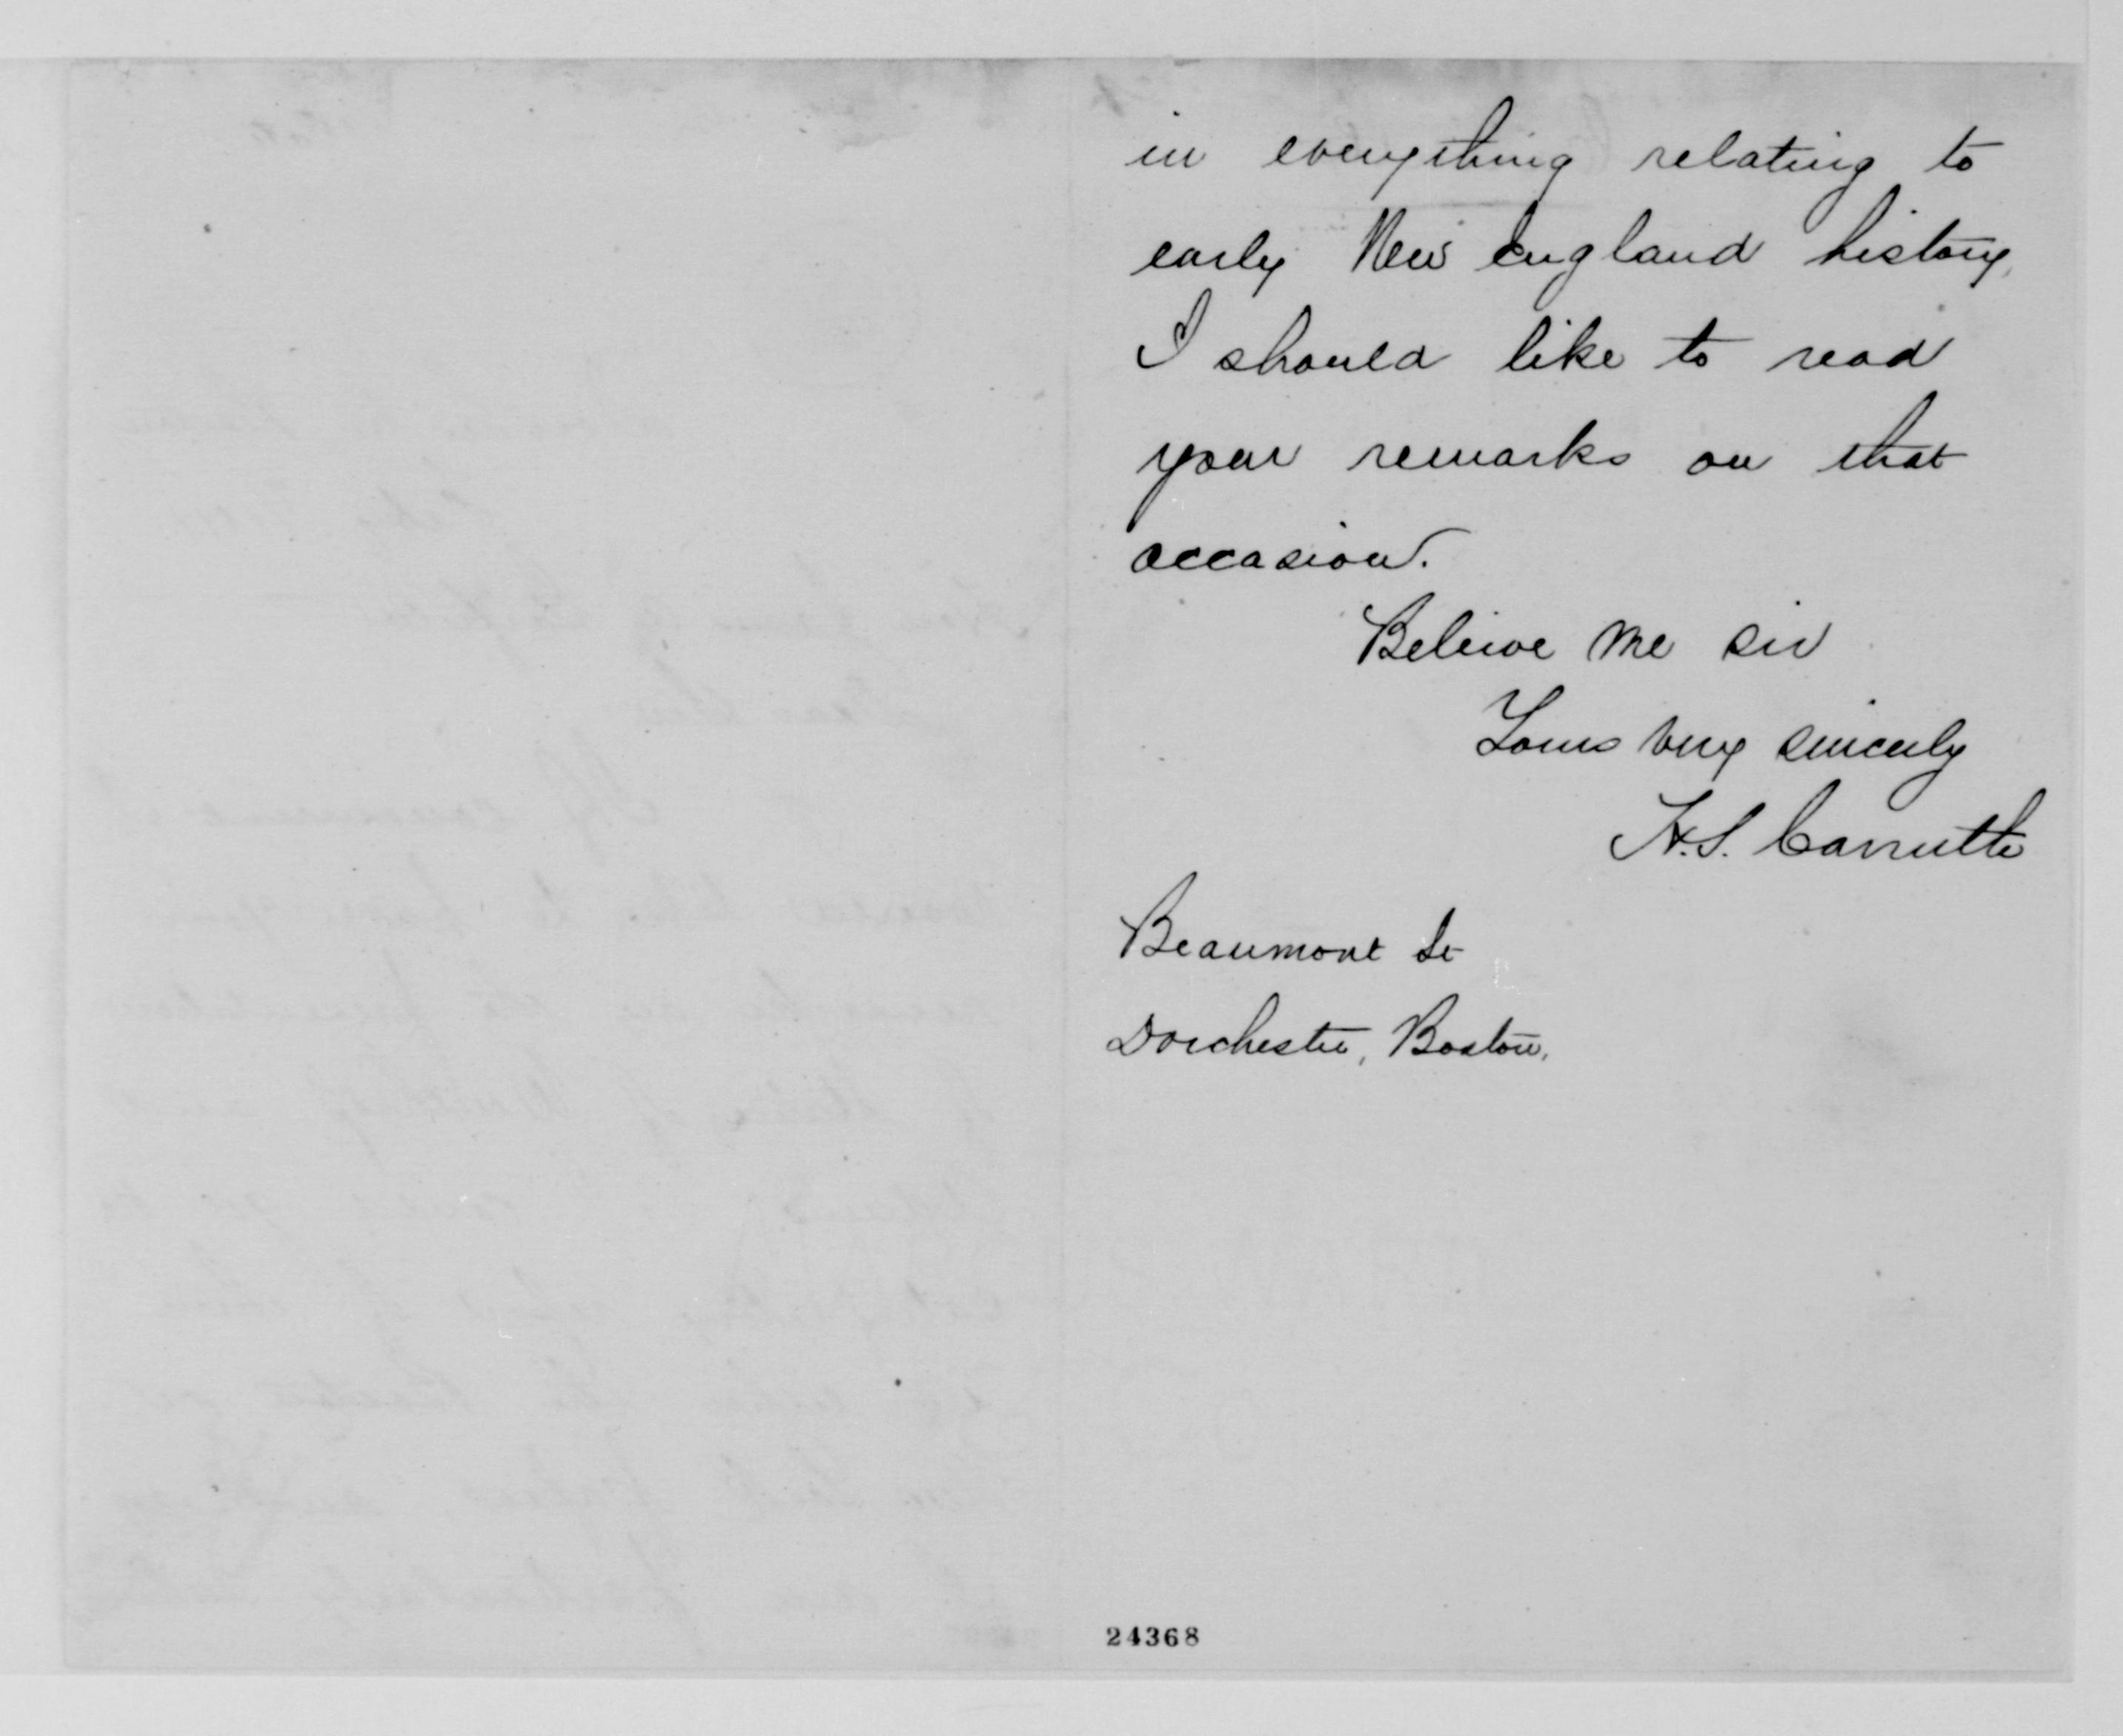 in everything relating to
early New England history,
I should like to read
your remarks on that
occasion.
Believe me sir
Yours very sincerely
H.S. Carruth
Beaumont St
Dorchester, Boston.
24368